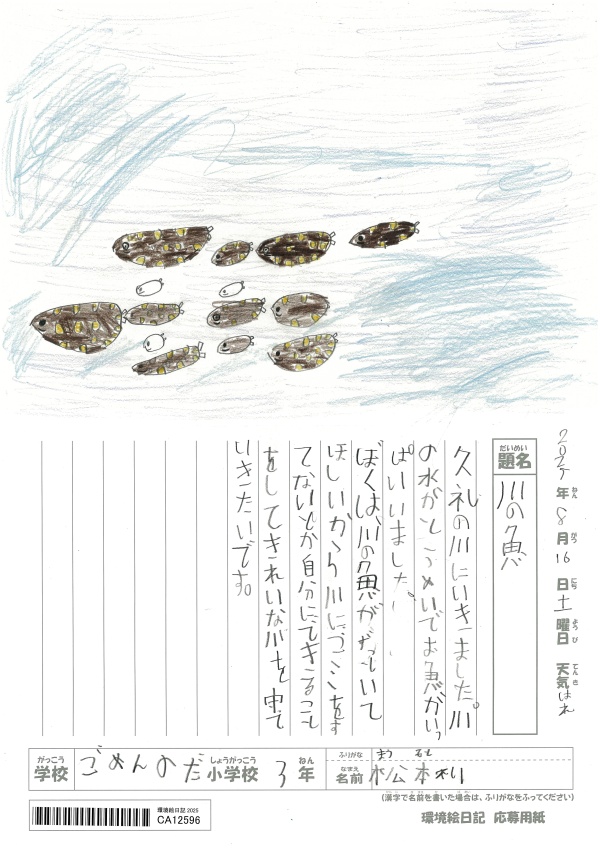 2025年8月16日土曜日 天気はれ
ねん がつ にち ようび てんき
だいめい
題名
川の魚
久礼の川にいきました。川
の水がとうめいでお魚がいっ
ぱいいました。
ぼくは、川の魚がずっといて
ほしいから川にゴミをす
てないとか自分にできること
をしてきれいな川を守て
いきたいです。
がっこう しょうがっこう ねん
学校 ごめんのだ 小学校 3年
ふりがな
なまえ
名前
(漢字で名前を書いた場合は、ふりがなをふってください)
環境絵日記 2025
CA12596
環境絵日記 応募用紙